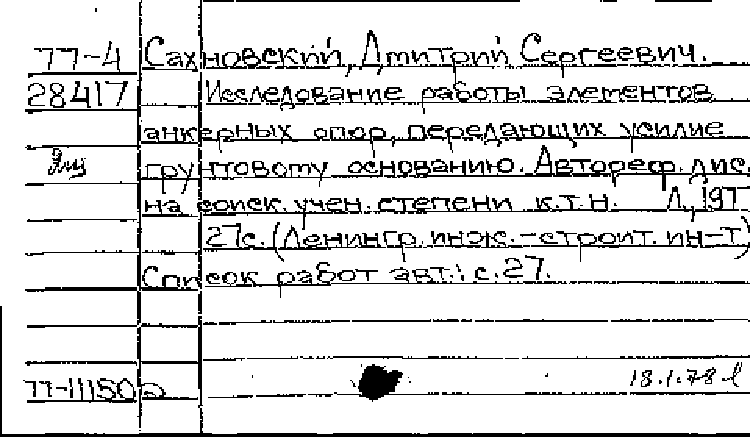 77-4 Сахновский, Дмитрий Сергеевич.
28417 Исследование работы элементов
анкерных опор, передающих усилие
грунтовому основанию. Автореф. дис.
на соиск. учен. степени к.т.н. Л., 197
27с. (Ленингр. инж.-строит. ин-т)
Список работ авт.: с.27.
77-11150 18.1.78